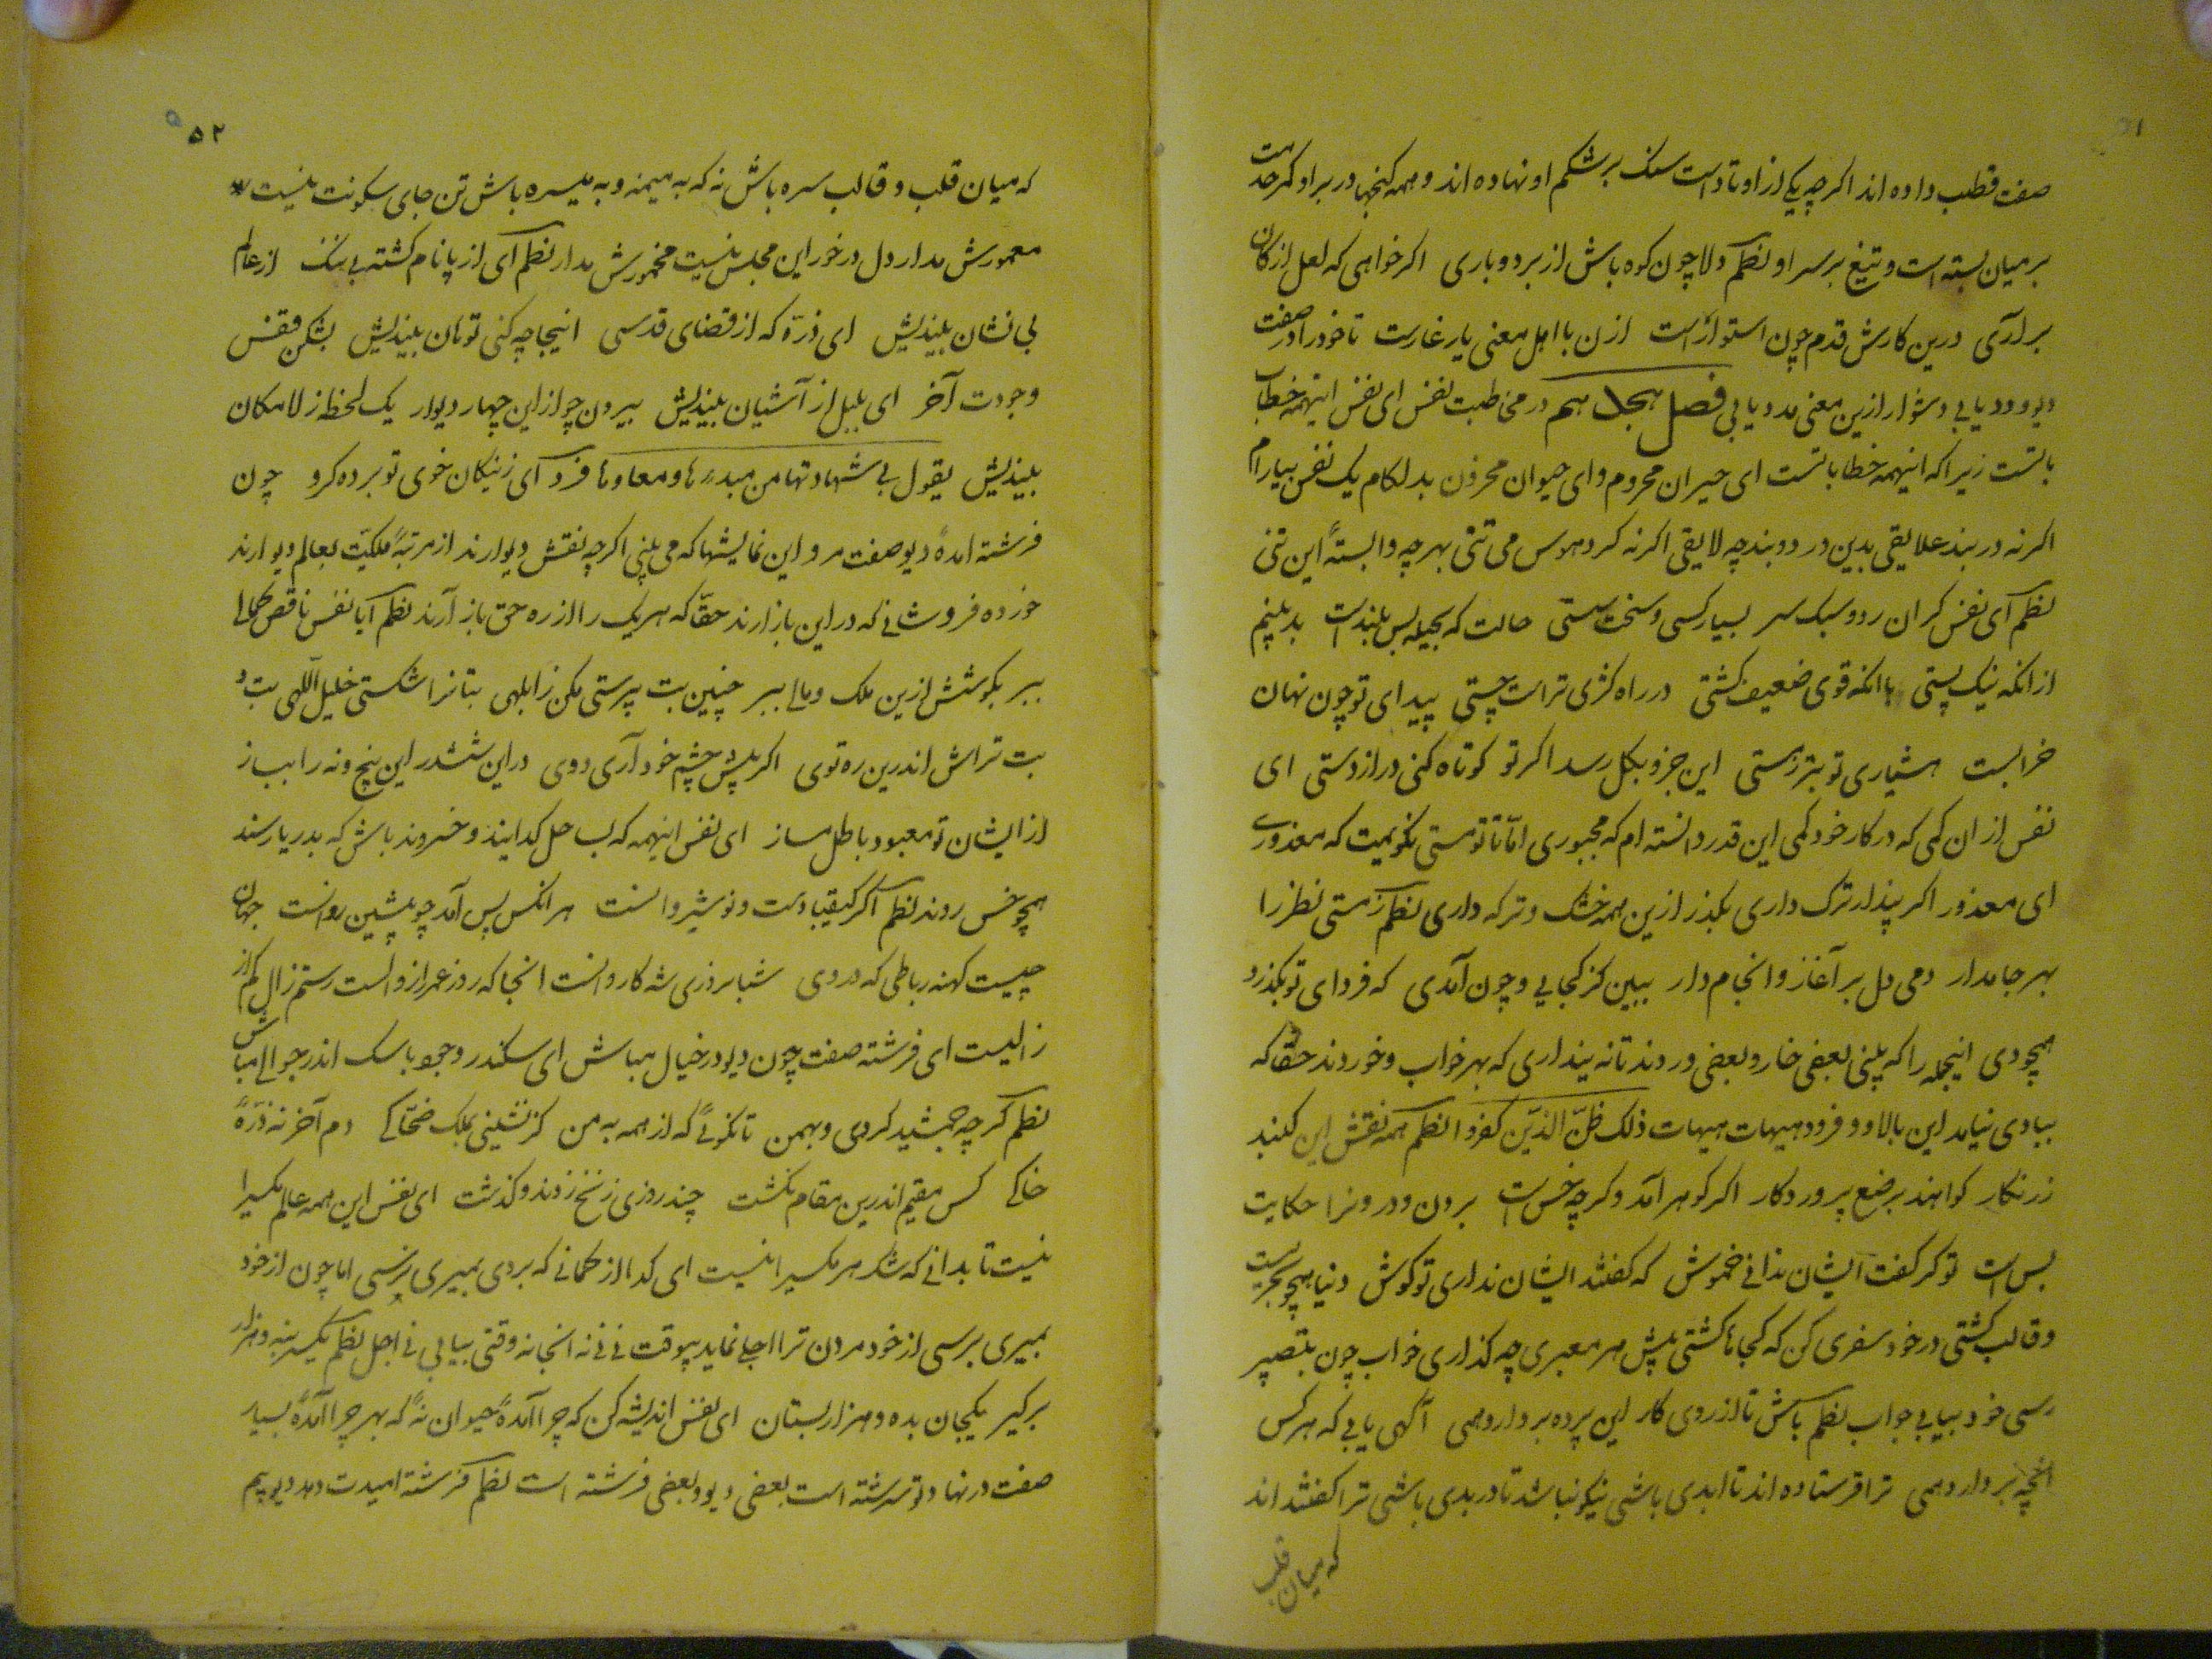 صفت قطب داده اند اکرچه یکی از اوتاد است سنک برشکم او نهاده اند و همه کنجها در بر او کمر خدمت
بر میان بسته است و تیغ بر سر او نظم دلا چون کوه باش از بردوباری اکر خواهی که لعل از کان
بر آری درین کارش قدم چون استوار است ازن با اهل معنی یار غارست تا خود را در صفت
دیو و دد یابی دشوار ازین معنی مدد یابی فصل هجدهم در مخاطبت نفس ای نفس اینهمه خطاب
باتست زیراکه اینهمه خطا باتست ای حیران محروم و ای حیوان محزون بد لکام یک نفس بیارام
اکر نه در بند علایقی بدین در دو بند چه لایقی اکر نه کرد هوس می تنی بهر چه وابستهٔ این تنی
نظم ای نفس کران رو و سبک سر بسیار کسی و سخت سستی حالت که بحیله بس بلند است بد بینم
از انکه نیک پستی باانکه قوی ضعیف کشتی در راه کژی تراست چستی پیدای تو چون نهان
خرابست هشیاری تو بتر ز مستی این جزو بکل رسد اکر تو کوتاه کنی دراز دستی ای
نفس از ان کمی که در کار خود کمی این قدر دانسته ام که مجبوری اما تا تو مستی نکویمت که معذوری
ای معذور اکر پندار ترک داری بکذر ازین همه خشک و تر که داری نظم ز مستی نظر را
بهر جا مدار دمی دل بر آغاز و انجام دار ببین کز کجایی و چون آمدی که فردای تو بکذرد
همچو دی اینجمله را که بینی بعضی خار و بعضی وردند تا نه پنداری که بهر خواب و خوردند حقا که
ببادی نیامد این بالا و فرود هیهات هیهات ذلک ظن الذین کفروا نظم همه نقش این کنبد
زرنکار کواهند بر صنع پروردکار اکر کوهر آمد و کرچه خس است برون و درونرا حکایت
بس است تو کر کفت ایشان ندانی خموش که کفتند ایشان نداری تو کوش دنیا همچو بحریست
و قالب کشتی در خود سفری کن که کجا کشتی پیش هر معبری چه کذاری خواب چون بتعبیر
رسی خود بیابی جواب نظم باش تا از روی کار این پرده بردارد همی آکهی یابی که هر کس
انچه بردارد همی ترا فرستاده اند تا ابدی باشی نیکو نباشد تا در بدی باشی ترا کفته اند
که میان قلب
۵۲
که میان قلب و قالب سره باش نه که به میمنه و به میسره باش تن جای سکونت نیست
معمورش مدار دل درخور این مجلس نیست مخمورش مدار نظم ای از پا نام کشته بی ننک از عالم
بی نشان بیندیش ای ذرّه که از فضای قدسی اینجا چه کنی تو هان بیندیش بشکن قفس
وجودت آخر ای بلبل از آشیان بیندیش بیرون چو ازین چهار دیوار یک لحظه ز لامکان
بیندیش یقول بی شهادتها من مبدءها و معادها فرد ای زنیکان خوی تو برده کرو چون
فرشته امدهٔ دیو صفت مرو این نمایشها که می بینی اکرچه نقش دیوارند از مرتبهٔ ملکیت بعالم دیو آرند
خورده فروشانی که در این بازارند حقّا که هر یک را از ره حق باز آرند نظم آیا نفس ناقص کمالی
ببر بکوشش ازین ملک و مالی ببر چنین بت پرستی مکن ز ابلهی بتانرا شکستی خلیل اللهی بت و
بت تراش اندرین ره توی اکر پیش چشم خود آری دوی در این ششدر این پنج و نه را بباز
از ایشان تو معبود باطل مساز ای نفس اینهمه که لب ساحل کدایند و خسروند باش که بدریا رسند
همچو خس روند نظم اکر کیقبادست و نوشیروانست هر انکس پس آمد چو پیشین روانست جهان
چیست کهنه رباطی که در وی شبانروزی شه کاروانست انجا که روز عمر ازوالست رستم زال کم از
زالیست ای فرشته صفت چون دیو در خیال مباش ای سکندر وجود با سک اندر جوالی مباش
نظم کرچه جمشید کردی و بهمن تا نکوئی که از همه به من کز نشینی بملک ضحّاکی دم آخر نه ذرّهٔ
خاکی کس مقیم اندرین مقام نکشت چند روزی زنخ زدند و کذشت ای نفس این همه عالم یکسرا
نیست تا بدانی که شکر هر یکسرا نیست ای کدا از کمانی که بردی بمیری نرسی اما چون از خود
بمیری برسی از خود مردن ترا اجلی نماید بیوقت نی نی نه انجا نه وقتی بیابی نی اجل نظم یکسر بنه و هزار
برکیر یکجان بده و هزار بستان ای نفس اندیشه کن که چرا آمدهٔ حیوان نهٔ که بهر چرا آمدهٔ بسیار
صفت در نهاد تو سرشته است بعضی دیو و بعضی فرشته است نظم فرشته امیدت دهد دیو بیم